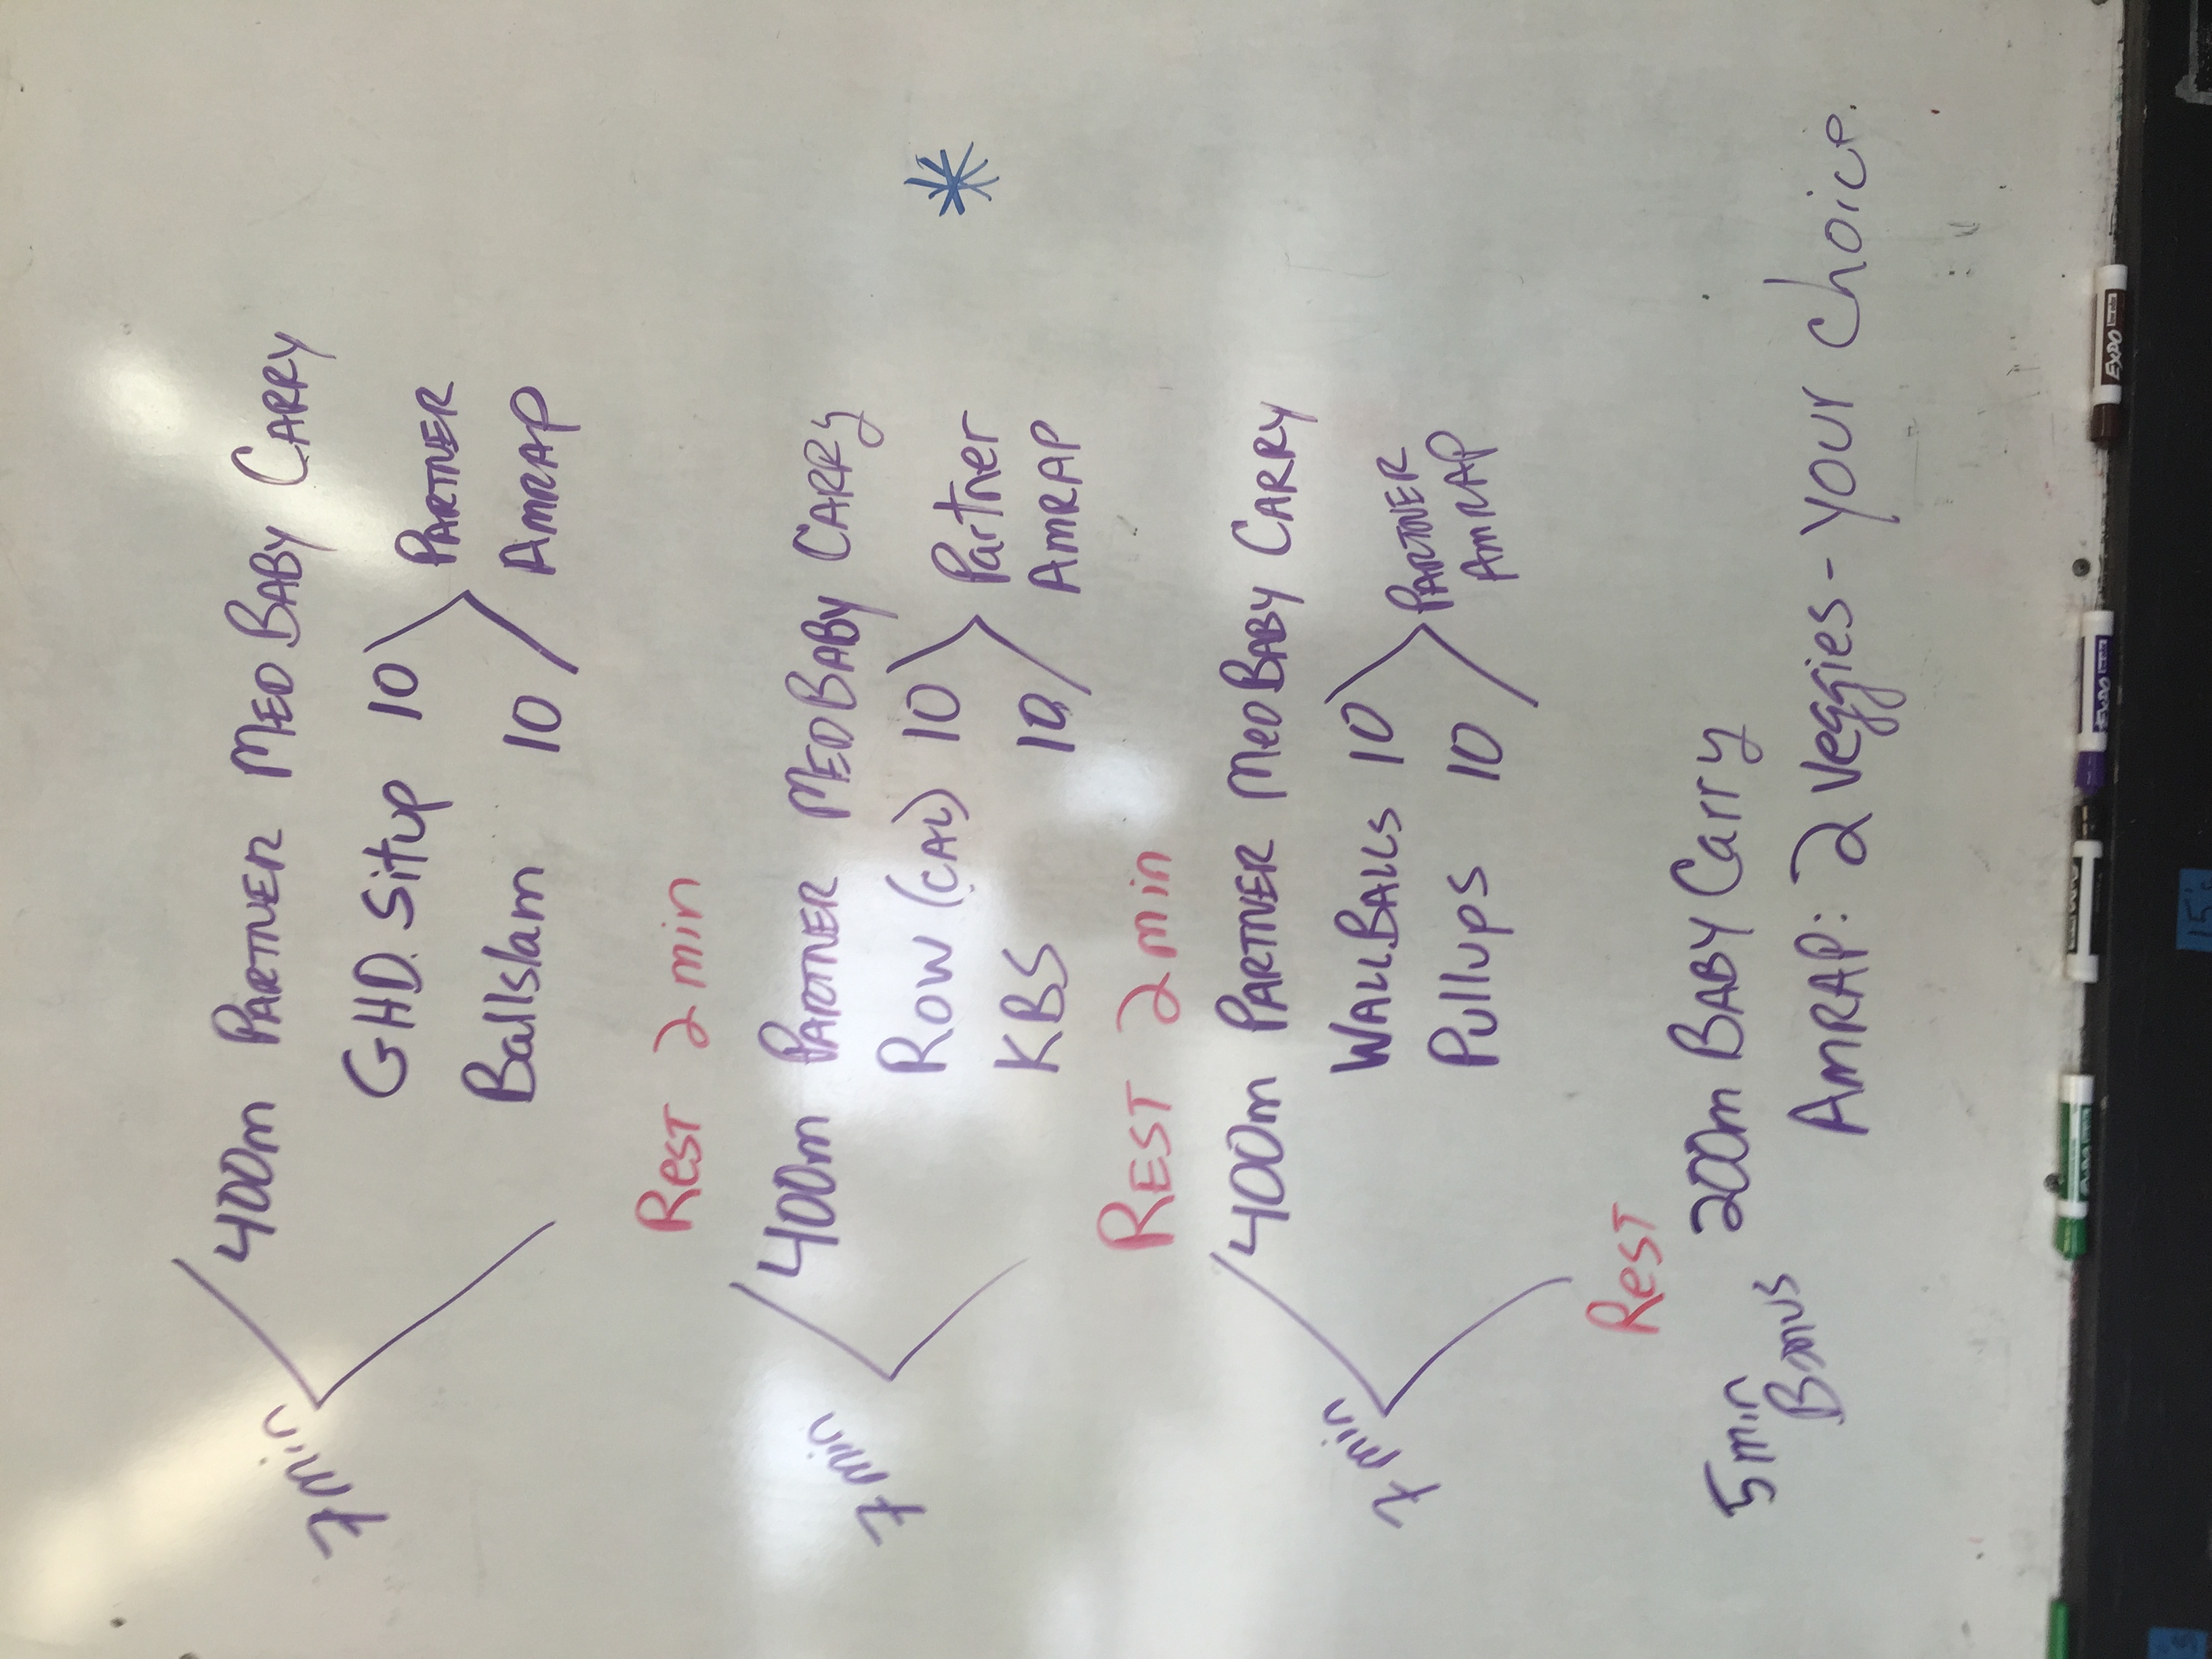 7 min
400m PARTNER MED BABY CARRY
GHD. Situp 10
Ballslam 10
PARTNER
AMRAP
REST 2 min
7 min
400m PARTNER MED BABY CARRY
ROW (CAL) 10
KBS 10
Partner
AMRAP
REST 2 min
7 min
400m PARTNER MED BABY CARRY
WALL.BALLS 10
Pullups 10
PARTNER
AMRAP
REST
5 min
Bonus
200m BABY Carry
AMRAP: 2 Veggies - your choice.
EXPO
EXPO